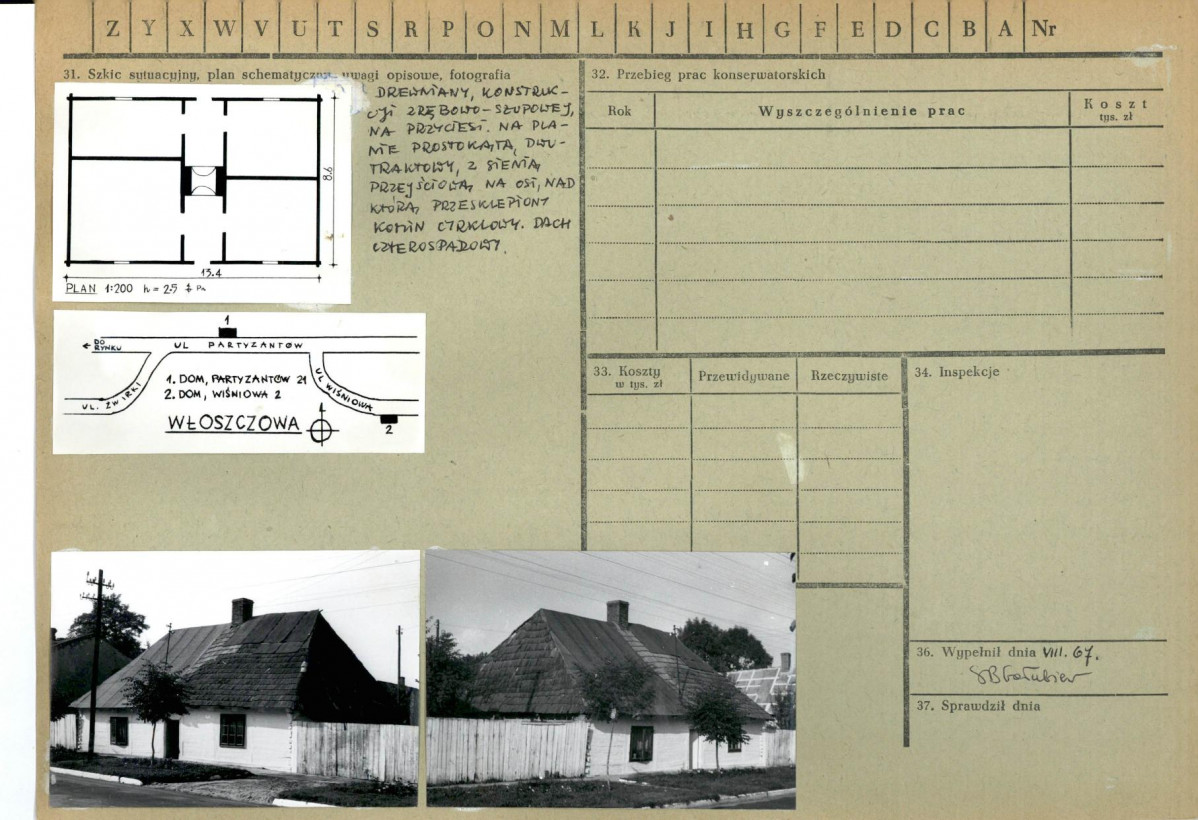 Z Y X W V U T S R P O N M L K J I H G F E D C B A Nr
31. Szkic sytuacyjny, plan schematyczny, uwagi opisowe, fotografia
DREWNIANY, KONSTRUK-
CJI ZRĘBOWO-SŁUPOWEJ,
NA PRZYCIESI. NA PLA-
NIE PROSTOKĄTA, DWU-
TRAKTOWY, Z SIENIĄ
PRZEJŚCIOWĄ NA OSI, NAD
KTÓRĄ PRZESKLEPIONY
KOMIN CYRKLOWY. DACH
CZTEROSPADOWY.
9.8
13.4
PLAN 1:200 h = 2.5
1
← DO RYNKU
UL PARTYZANTÓW
UL. ŻWIRKI
UL WIŚNIOWA
1. DOM, PARTYZANTÓW 21
2. DOM, WIŚNIOWA 2
WŁOSZCZOWA
2
32. Przebieg prac konserwatorskich
Rok Wyszczególnienie prac Koszt
tys. zł
33. Koszty
w tys. zł
Przewidywane Rzeczywiste
34. Inspekcje
36. Wypełnił dnia VIII. 67.
37. Sprawdził dnia